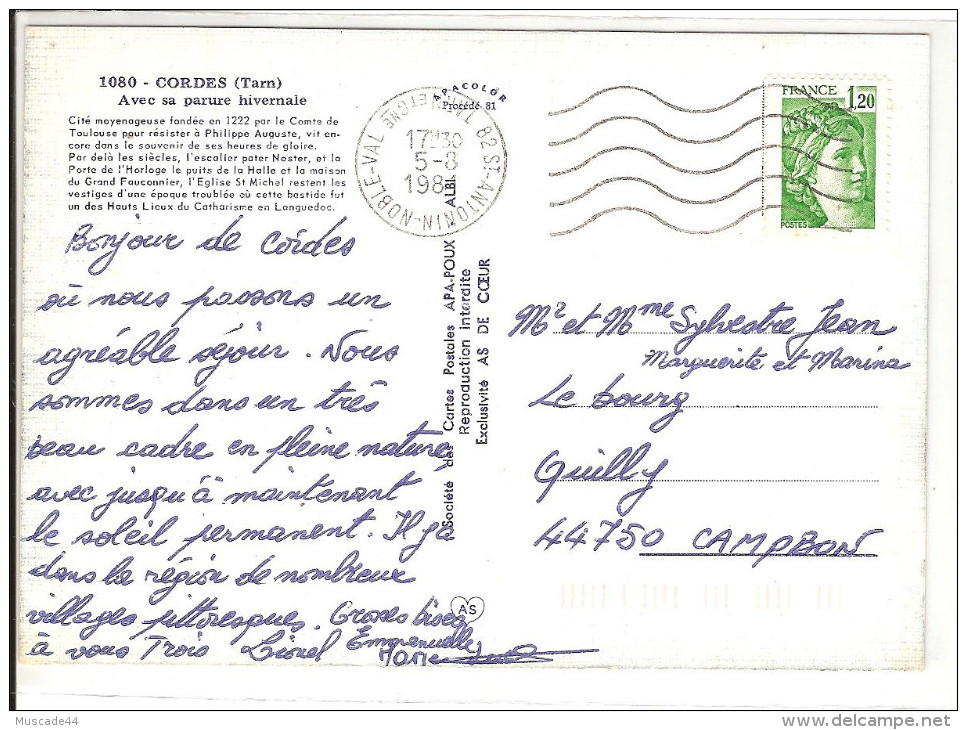 1080 - CORDES (Tarn)
Avec sa parure hivernale
Cité moyenageuse fondée en 1222 par le Comte de
Toulouse pour résister à Philippe Auguste, vit en-
core dans le souvenir de ses heures de gloire.
Par delà les siècles, l'escalier pater Noster, et la
Porte de l'Horloge le puits de la Halle et la maison
du Grand Fauconnier, l'Eglise St Michel restent les
vestiges d'une époque troublée où cette bastide fut
un des Hauts Lieux du Catharisme en Languedoc.
Bonjour de Cordes
où nous passons un
agréable séjour. Nous
sommes dans un très
beau cadre en pleine nature,
avec jusqu'à maintenant
le soleil permanent. Il y a
dans la région de nombreux
villages pittoresques. Grosses bises
à vous Trois Lionel Emmanuelle
APACOLOR
Procédé 81
82 ST-ANTONIN-NOBLE-VAL
17H30
5-8
198
Société des Cartes Postales APA-POUX ALBI
Reproduction interdite
Exclusivité AS DE CŒUR
AS
FRANCE 1,20
POSTES
Mr et Mme Sylvestre Jean
Marguerite et Marina
Le bourg
Quilly
44750 CAMPBON
Muscade44
www.delcampe.net